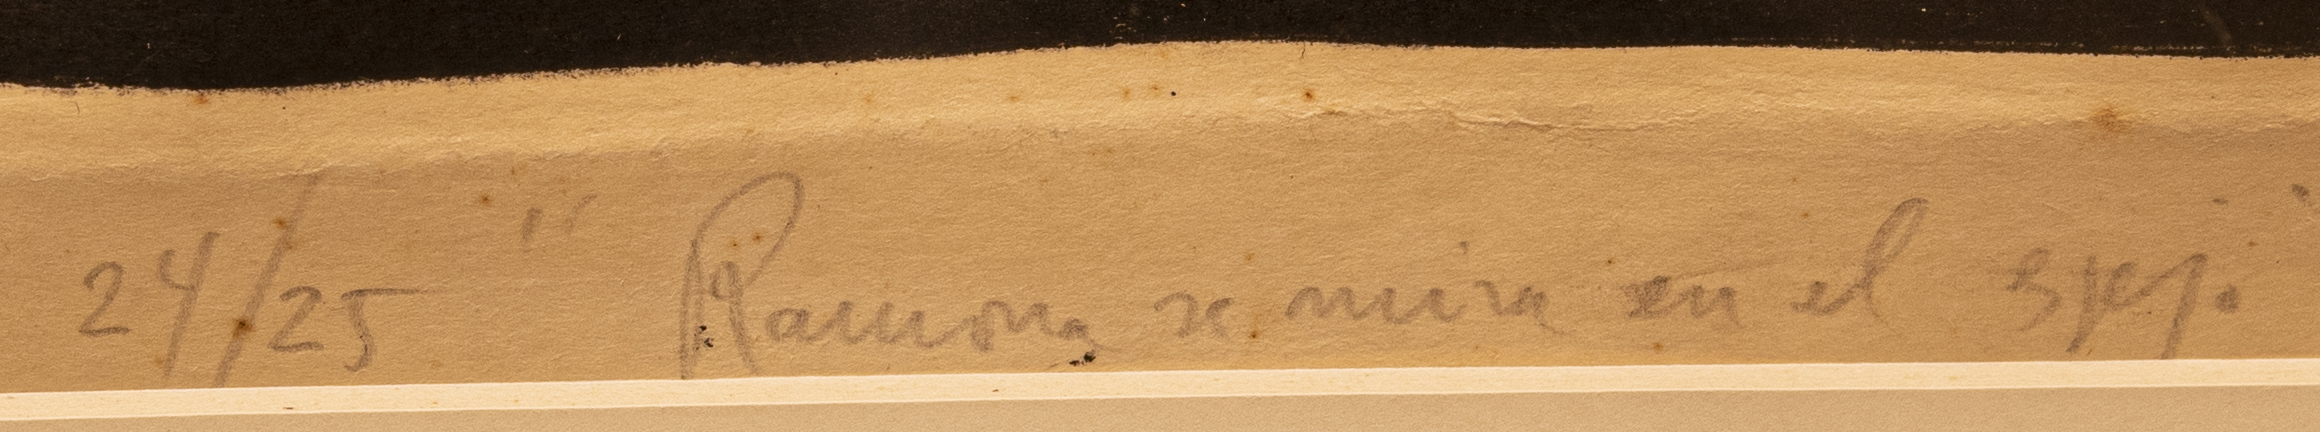 24/25 "Ramona se mira en el espejo"